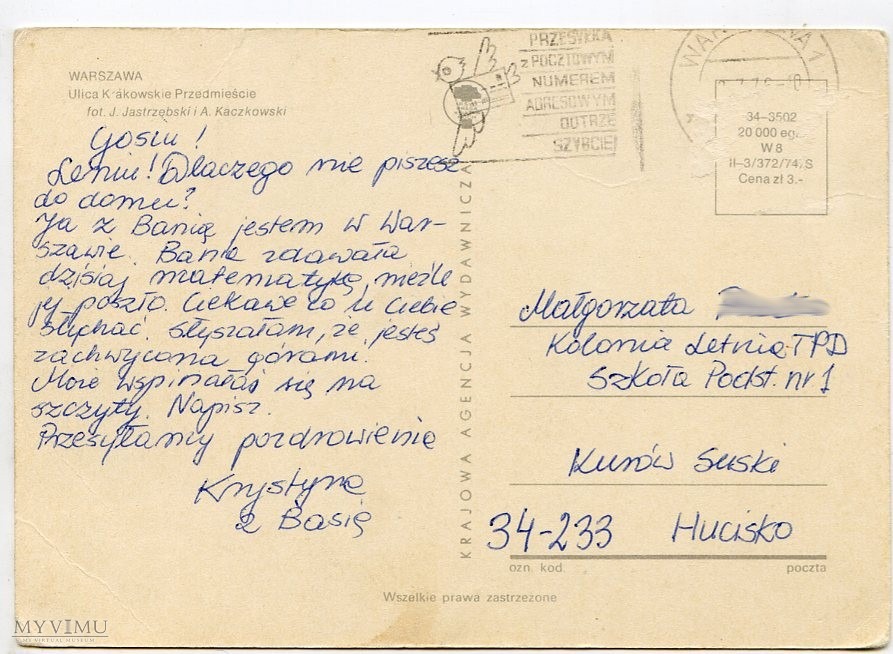 WARSZAWA
Ulica Krakowskie Przedmieście
fot. J. Jastrzębski i A. Kaczkowski
Gosiu!
Leniu! Dlaczego nie piszesz
do domu?
Ja z Basią jestem w War-
szawie. Basia zdawała
dzisiaj matematykę, nieźle
jej poszło. Ciekawe co u Ciebie
słychać. Słyszałam, że jesteś
zachwycona górami.
Może wspinałaś się na
szczyty. Napisz.
Przesyłamy pozdrowienia
Krystyna
z Basią
KRAJOWA AGENCJA WYDAWNICZA
PRZESYŁKA
z POCZTOWYM
NUMEREM
ADRESOWYM
DOTRZE
SZYBCIEJ
34-3502
20 000 egz.
W 8
II-3/372/74/S
Cena zł 3.-
Małgorzata
Kolonia Letnia TPD
Szkoła Podst. nr 1
Kurów Suski
34-233 Hucisko
ozn. kod. poczta
Wszelkie prawa zastrzeżone
MYVIMU
MY VIRTUAL MUSEUM